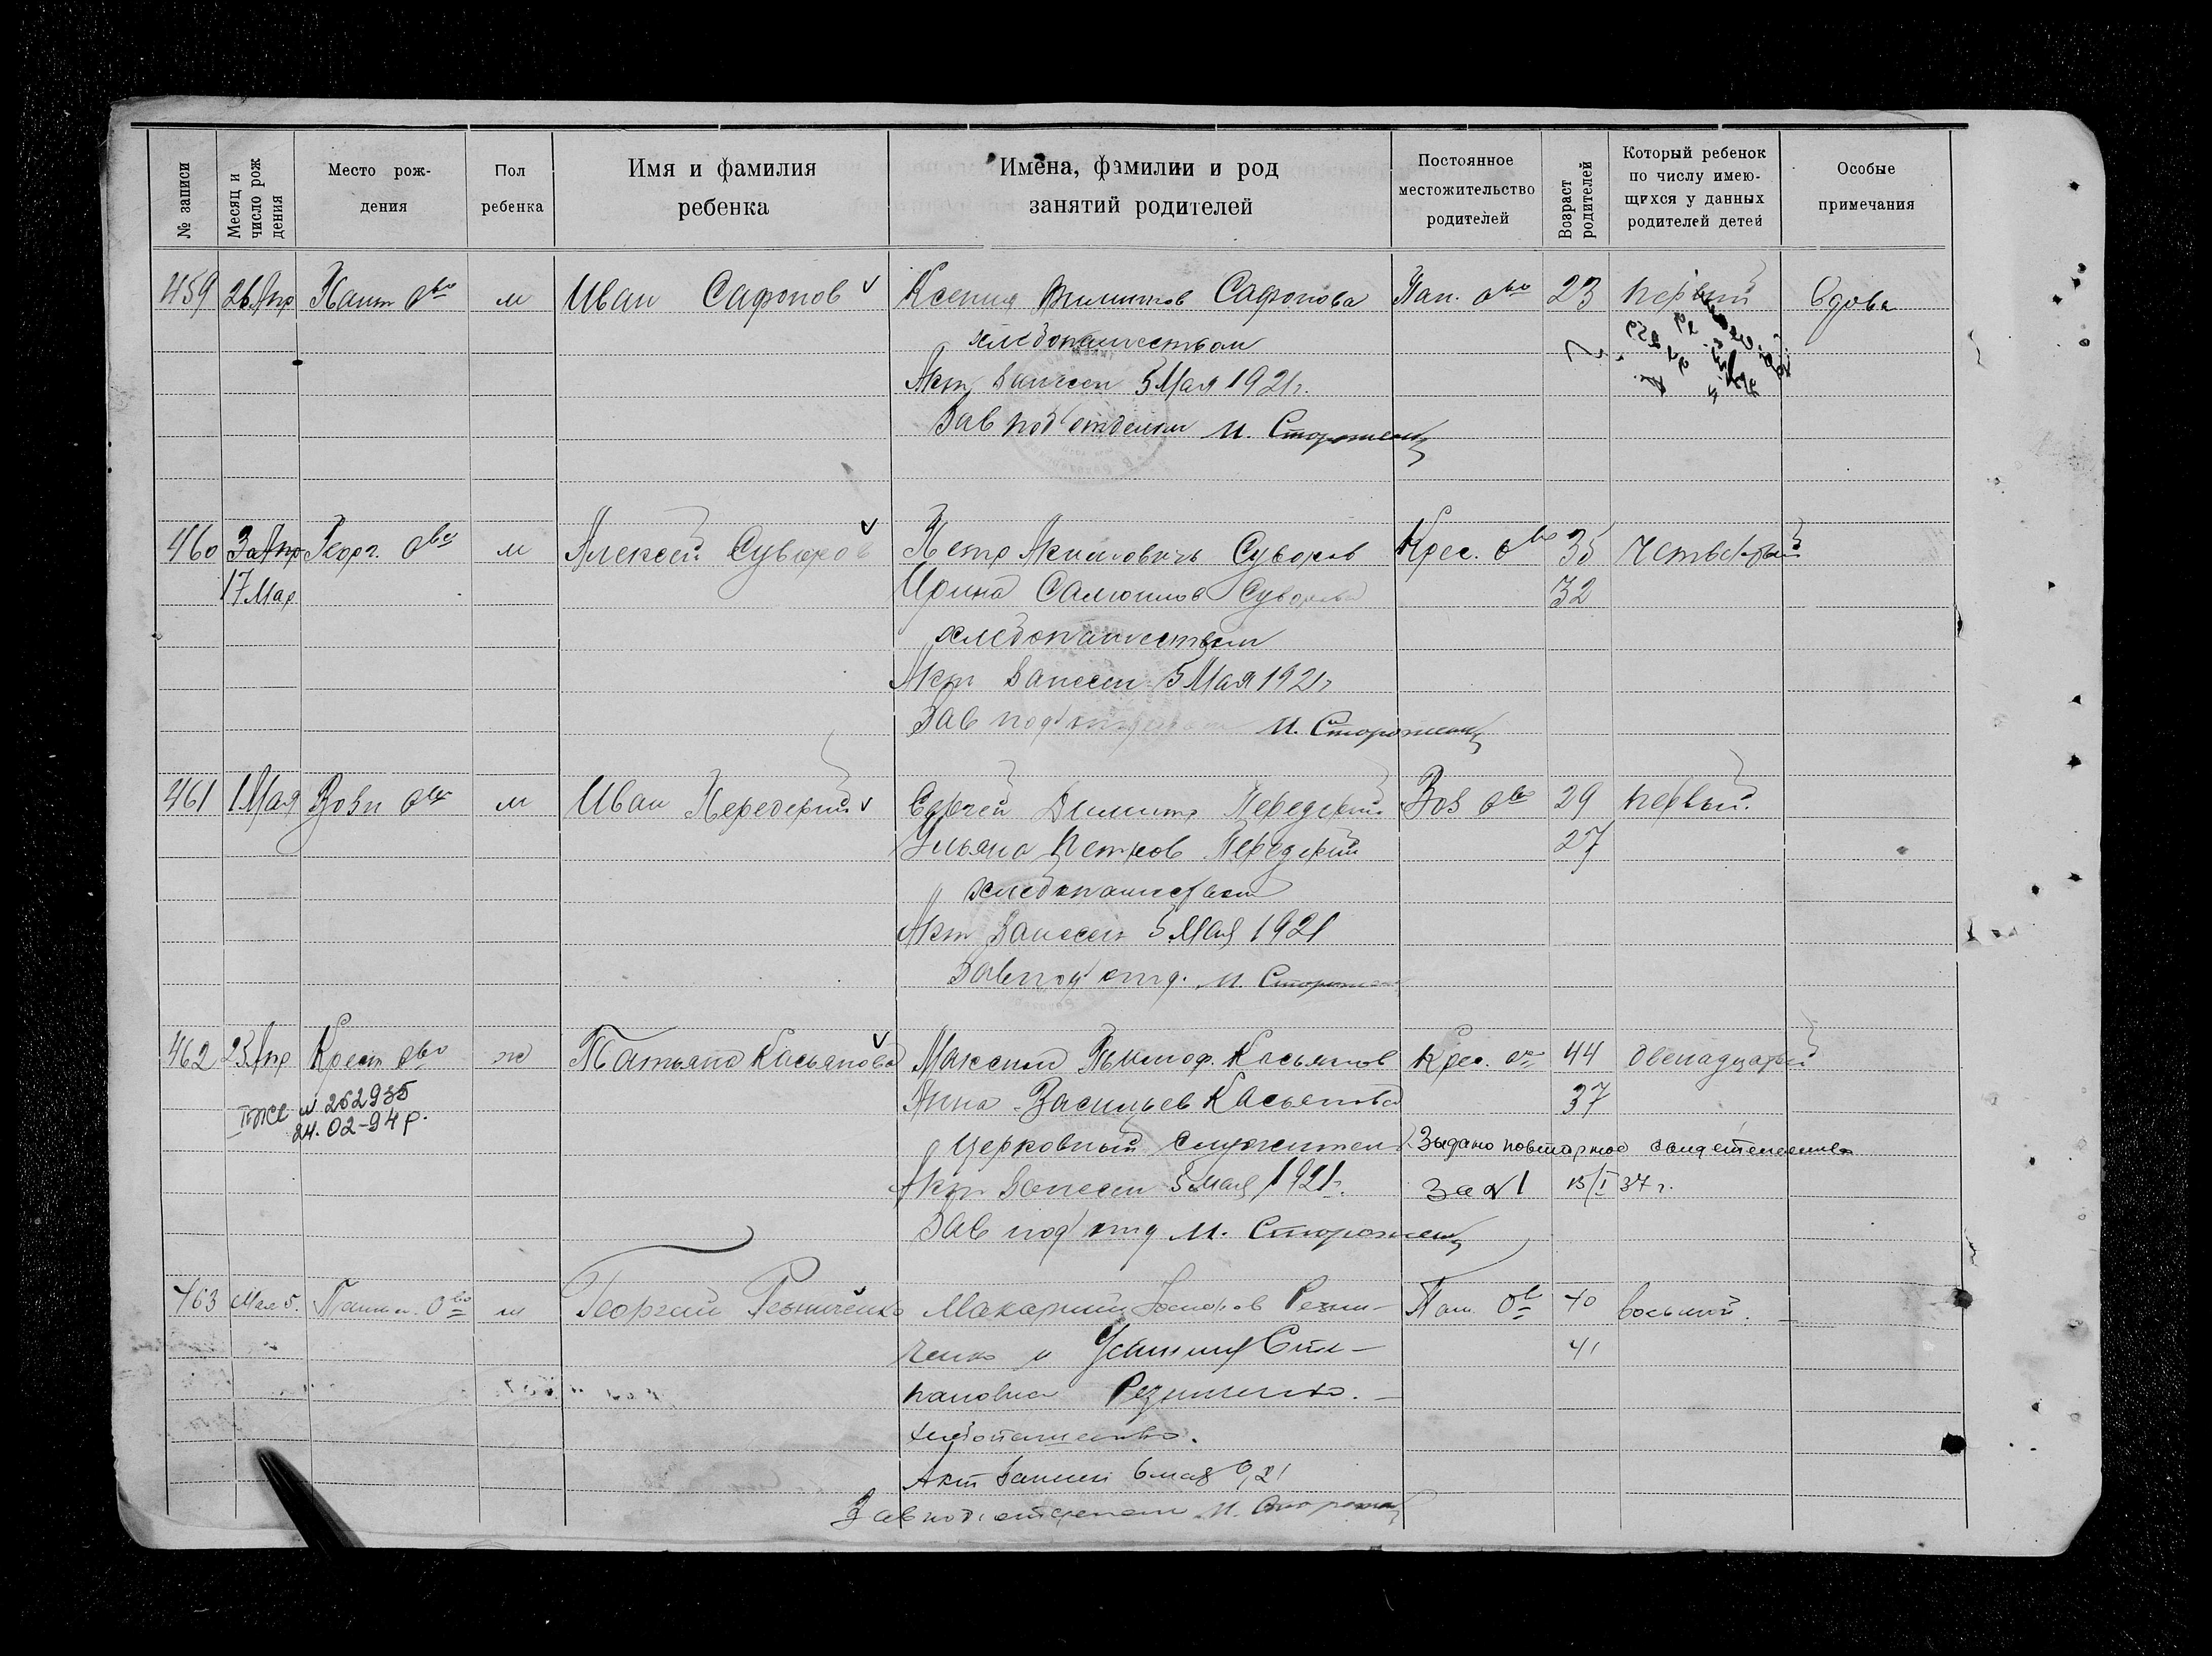 № записи
Месяц и число рож дения
Место рож-
дения
Пол
ребенка
Имя и фамилия
ребенка
Имена, фамилии и род
занятий родителей
Постоянное
местожительство
родителей
Возраст родителей
Который ребенок
по числу имею-
щихся у данных
родителей детей
Особые
примечания
459 26 Апр м Иван Сафонов Ксения Сафонова Пан. о-во 23 первый вдова
хлебопашеством
Акт занесен 5 Мая 1921 г.
Зав под отделом И. Стороженко
460 Геор. о-во м Алексей Суворов Петр Акимович Суворов Крес. о-во 35 четвертый
17 Мар Ирина Суворова 32
хлебопашеством
Акт занесен 5 Мая 1921 г
Зав под И. Стороженко
461 1 Мая Возн о-во м Иван Передерий Сергей Димитр Передерий Воз о-во 29 первый.
Ульяна Петров Передерий 27
хлебопашеством
Акт занесен 5 Мая 1921
Зав под отд. И. Стороженко
462 23 Апр Крест о-во ж Татьяна Касьянова Максим Тимоф. Касьянов Крес. о-во 44 двенадцатый
Анна Васильев Касьянова 37
№ 262935
24.02-94 р.
Церковный служитель Выдано повторное свидетельство
Акт занесен 5 мая 1921 г. за №1 15/I 37 г.
Зав под отд И. Стороженко
463 Мая 5. Пант. о-во м Георгий Резниченко Макарий Резни- Пан. о-во 40 восьмой.
ченко и Устиния Сте- 41
пановна Резниченко.
хлебопашество.
Акт занесен 6 мая 921
Зав под отделом И. Стороженко